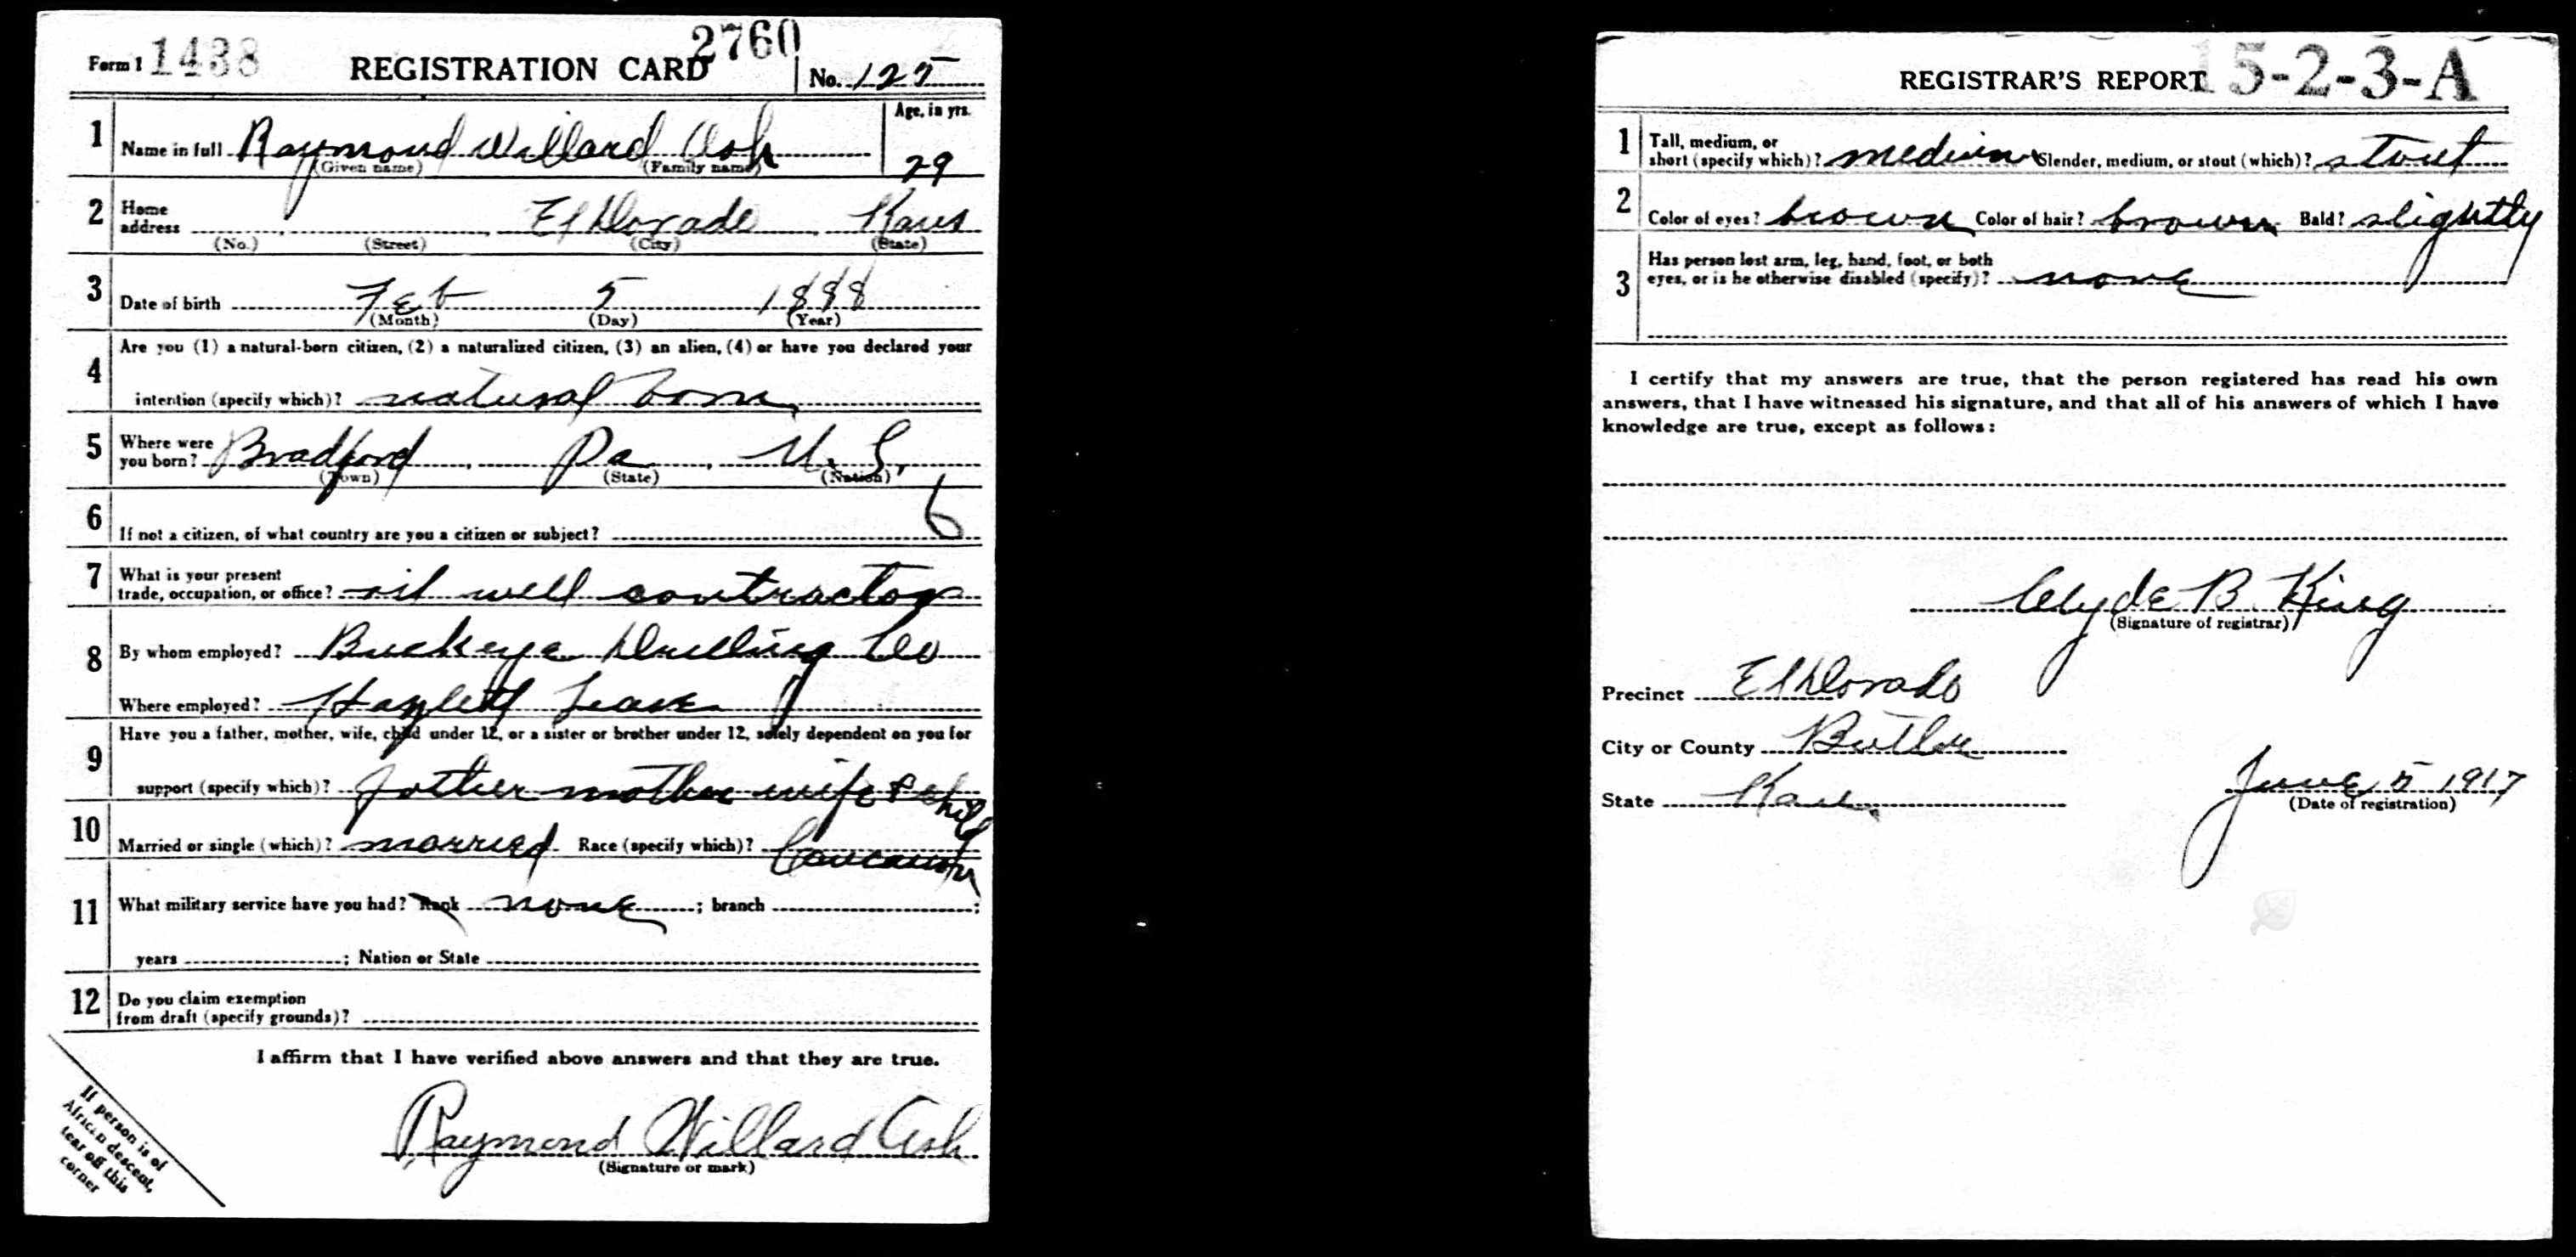 Form 1 1438 REGISTRATION CARD 2760 No. 125
1 Name in full Raymond Willard Ash Age, in yrs.
(Given name) (Family name) 29
2 Home address El Dorado Kans
(No.) (Street) (City) (State)
3 Date of birth Feb 5 1888
(Month) (Day) (Year)
4 Are you (1) a natural-born citizen, (2) a naturalized citizen, (3) an alien, (4) or have you declared your
intention (specify which)? natural born
5 Where were you born? Bradford Pa U. S.
(Town) (State) (Nation)
6 If not a citizen, of what country are you a citizen or subject? 6
7 What is your present
trade, occupation, or office? oil well contractor
8 By whom employed? Buckeye Drilling Co
Where employed? Hazlett Lease
9 Have you a father, mother, wife, child under 12, or a sister or brother under 12, solely dependent on you for
support (specify which)? father mother wife & child
10 Married or single (which)? married Race (specify which)? Caucasian
11 What military service have you had? Rank none ; branch ;
years ; Nation or State
12 Do you claim exemption
from draft (specify grounds)?
I affirm that I have verified above answers and that they are true.
Raymond Willard Ash
(Signature or mark)
If person is of
African descent,
tear off this
corner
REGISTRAR'S REPORT 15-2-3-A
1 Tall, medium, or
short (specify which)? medium Slender, medium, or stout (which)? stout
2 Color of eyes? brown Color of hair? brown Bald? slightly
3 Has person lost arm, leg, hand, foot, or both
eyes, or is he otherwise disabled (specify)? none
I certify that my answers are true, that the person registered has read his own
answers, that I have witnessed his signature, and that all of his answers of which I have
knowledge are true, except as follows:
Clyde B. King
(Signature of registrar)
Precinct El Dorado
City or County Butler
State Kans June 5 1917
(Date of registration)